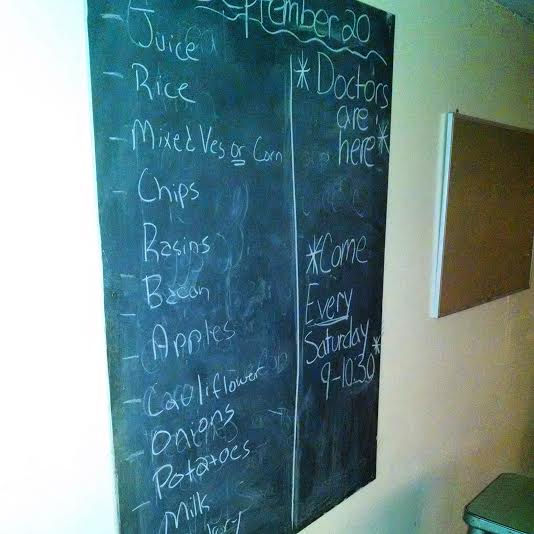 September 20
- Juice
- Rice
- Mixed Ves or Corn
- Chips
Rasins
- Bacon
- Apples
- Cauliflower
- Onions
Potatoes
- Milk
* Doctors
are
here *
* Come
Every
Saturday
9-10:30 *